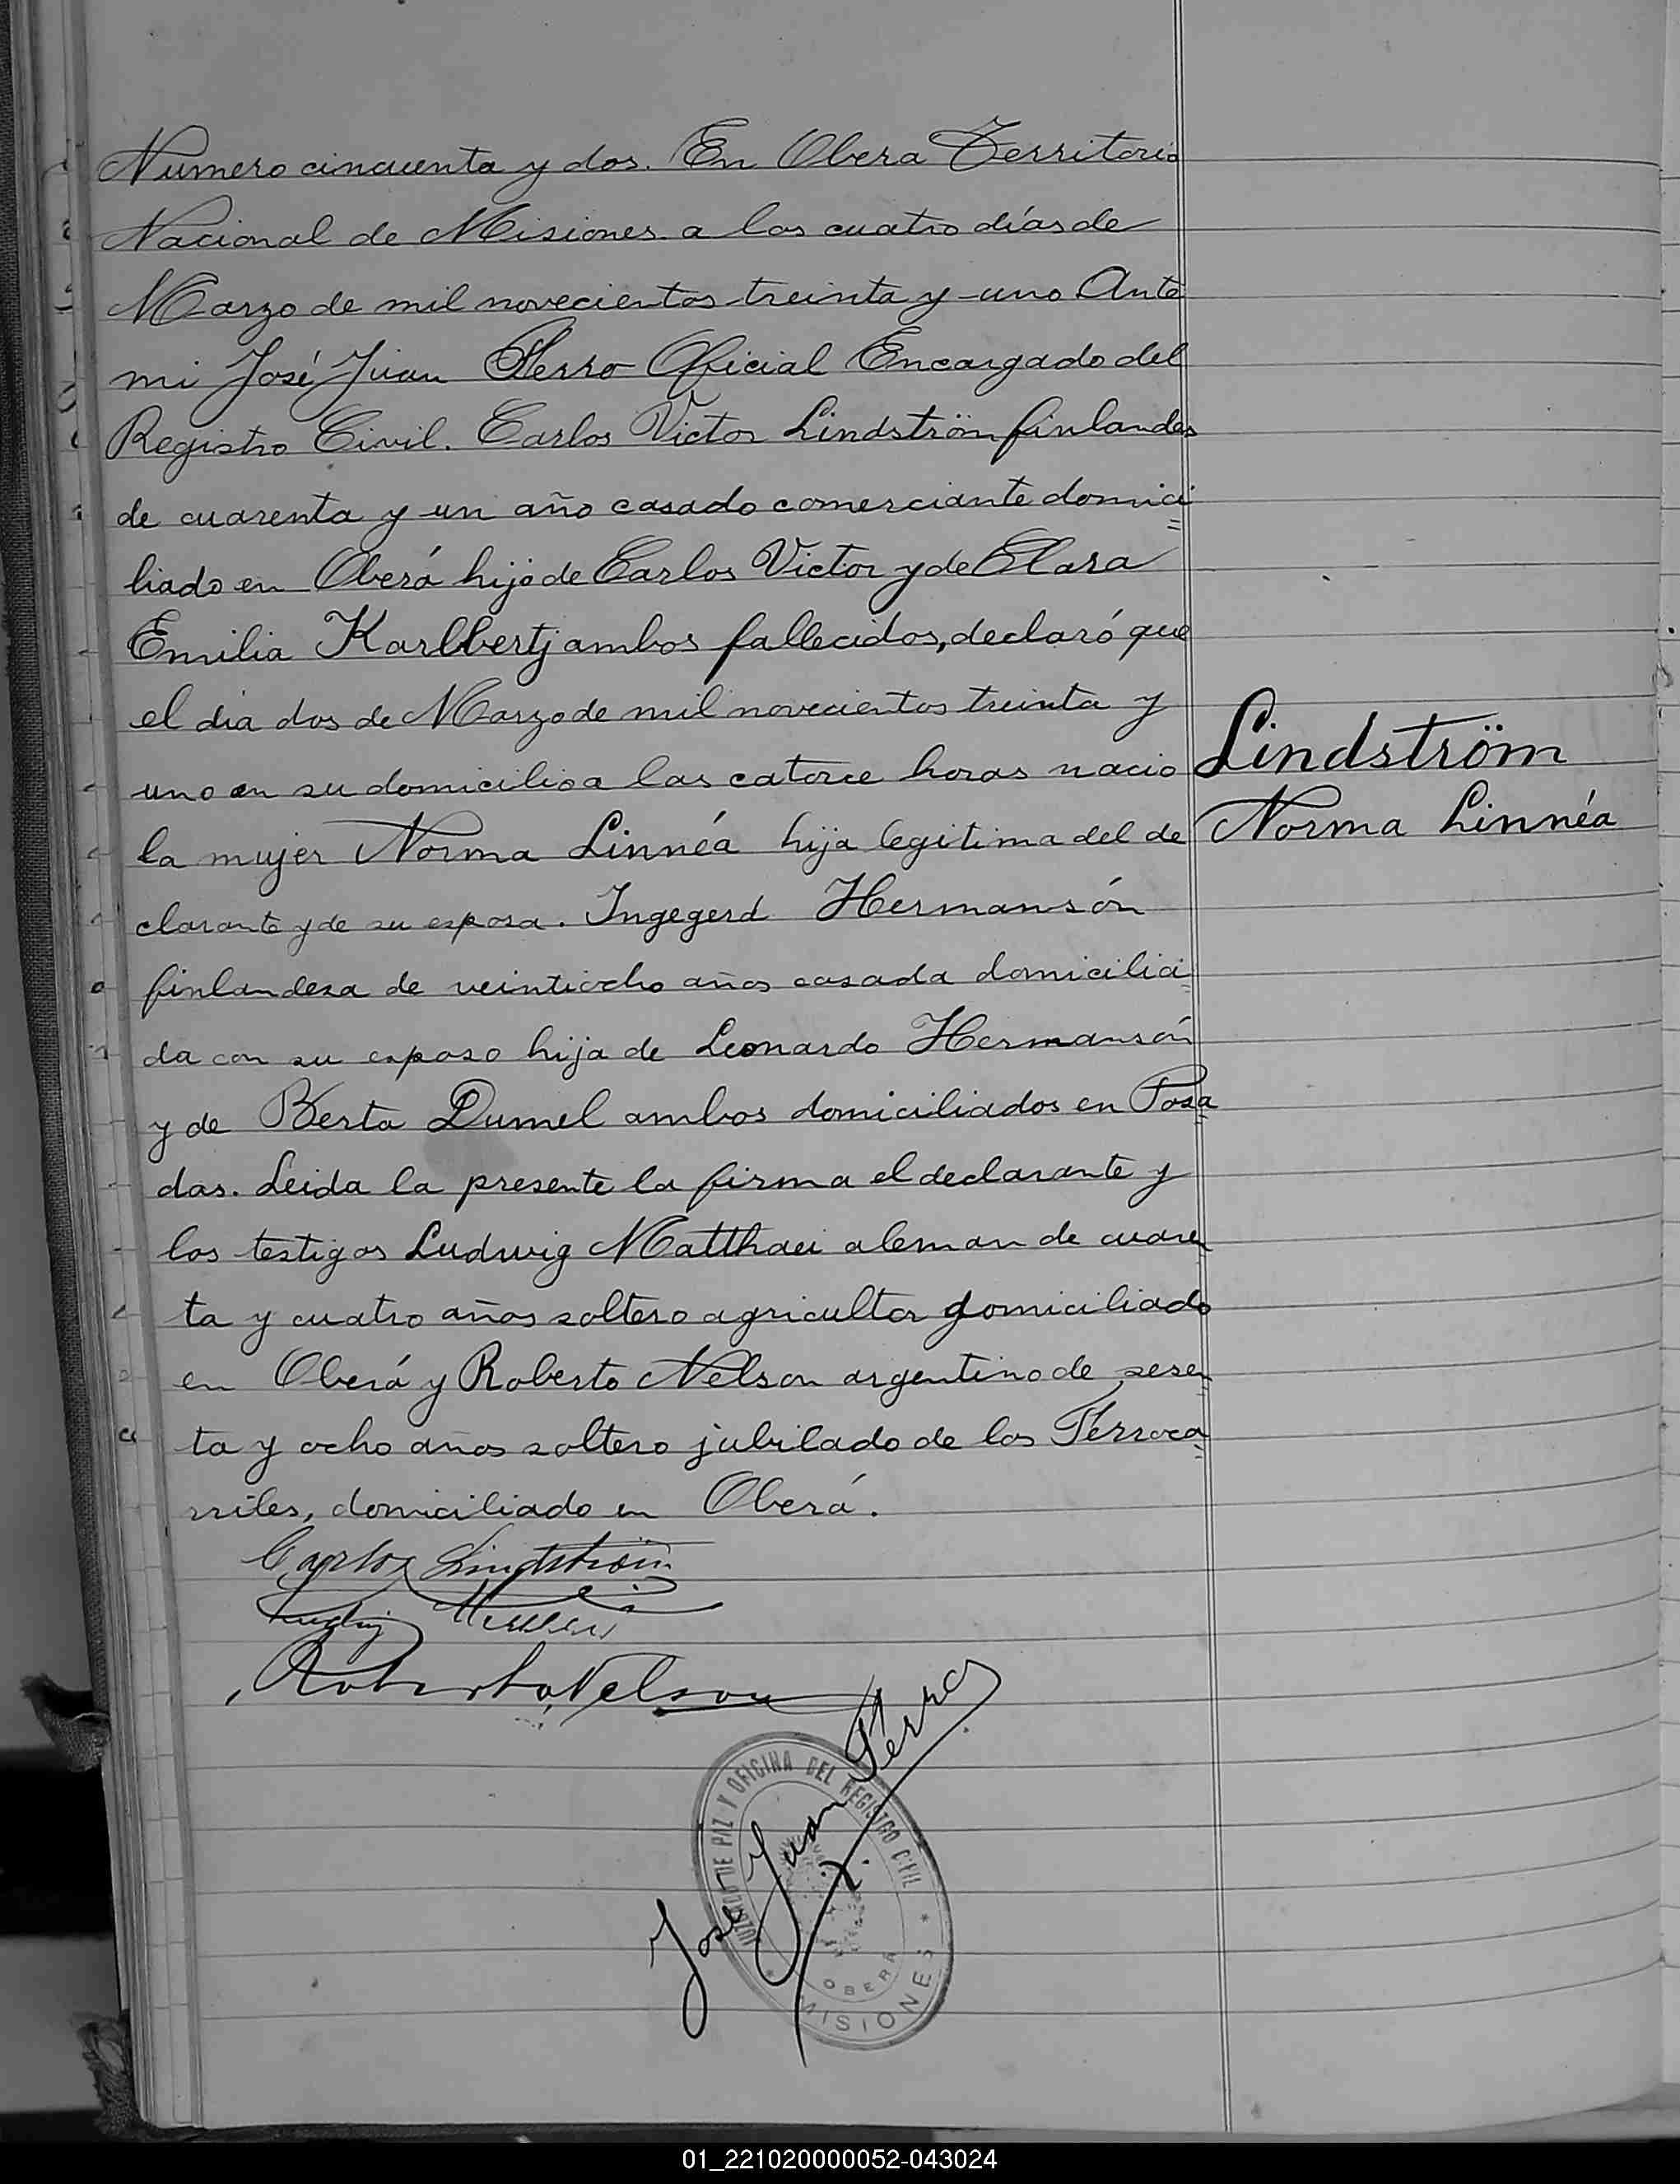 Numero cincuenta y dos. En Obera Territorio
Nacional de Misiones a los cuatro días de
Marzo de mil novecientos treinta y uno Ante
mi José Juan Ferro Oficial Encargado del
Registro Civil. Carlos Victor Lindström finlandes
de cuarenta y un año casado comerciante domici
liado en Oberá hijo de Carlos Victor y de Clara
Emilia Karlbertj ambos fallecidos, declaró que
el dia dos de Marzo de mil novecientos treinta y
uno en su domicilio a las catorce horas nacio
Lindström
la mujer Norma Linnéa hija legitima del de
Norma Linnéa
clarante y de su esposa. Ingegerd Hermansón
finlandesa de veintiocho años casada domicilia
da con su esposo hija de Leonardo Hermansón
y de Berta Dumel ambos domiciliados en Posa
das. Leida la presente la firma el declarante y
los testigos Ludwig Matthaei aleman de cuaren
ta y cuatro años soltero agricultor domiciliado
en Oberá y Roberto Nelson argentino de sesen
ta y ocho años soltero jubilado de los Ferroca
rriles, domiciliado en Oberá.
Carlos Lindström
Roberto Nelson
José Juan Ferro
JUZGADO DE PAZ Y OFICINA DEL REGISTRO CIVIL
OBERA
MISIONES
01_221020000052-043024